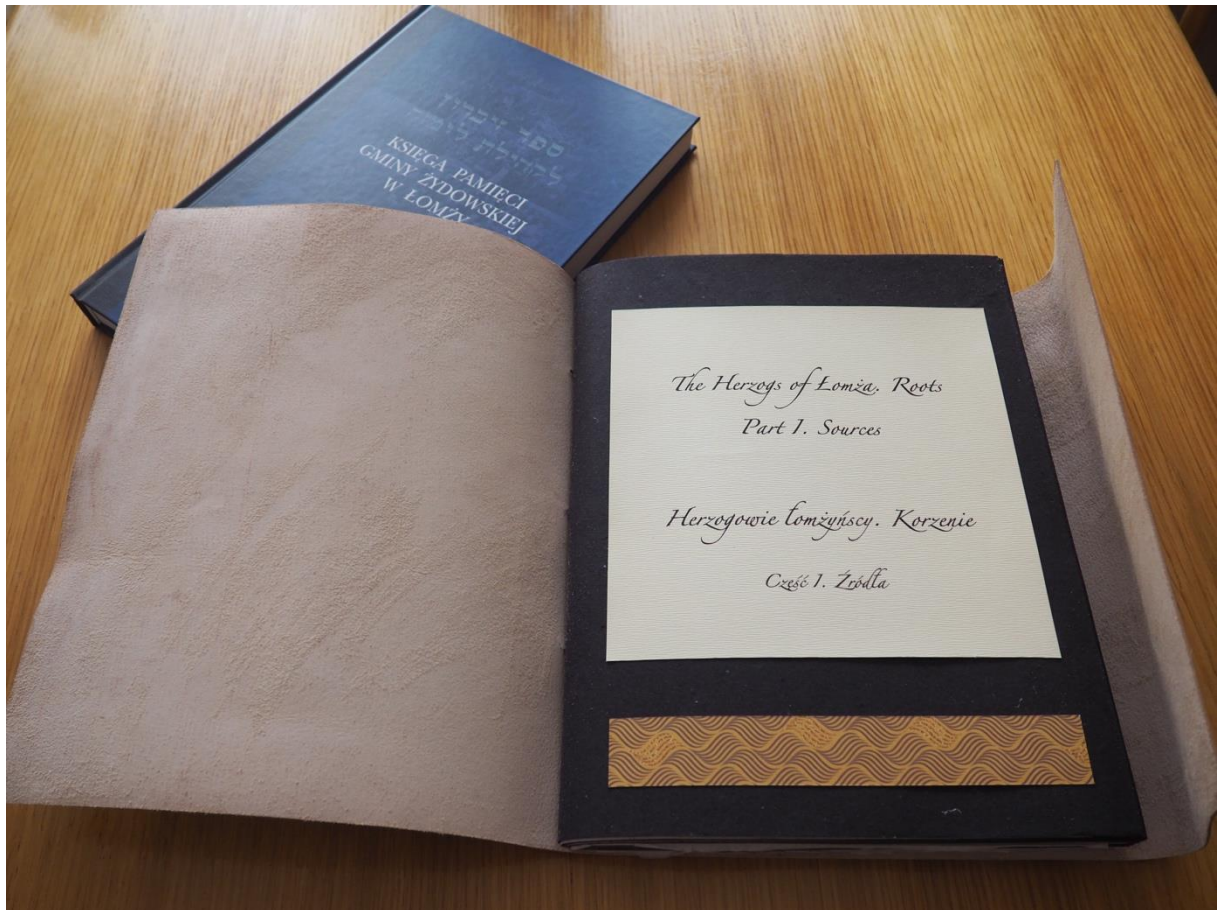 ספר זכרון
לקהילת לומזה
KSIĘGA PAMIĘCI
GMINY ŻYDOWSKIEJ
W ŁOMŻY
The Herzogs of Łomża. Roots
Part I. Sources
Herzogowie łomżyńscy. Korzenie
Część I. Źródła